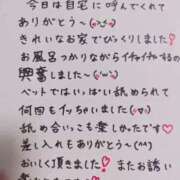 今日は自宅に呼んでくれて
ありがとう〜
きれいなお家でびっくりました！
お風呂つかりながらイチャイチャするの
興奮しました〜
ベットではいっぱい舐められて
何回もイッちゃいました
舐め合いっこも楽しかったです
差し入れもありがとう〜(^^)
おいしく頂きました！またお誘い